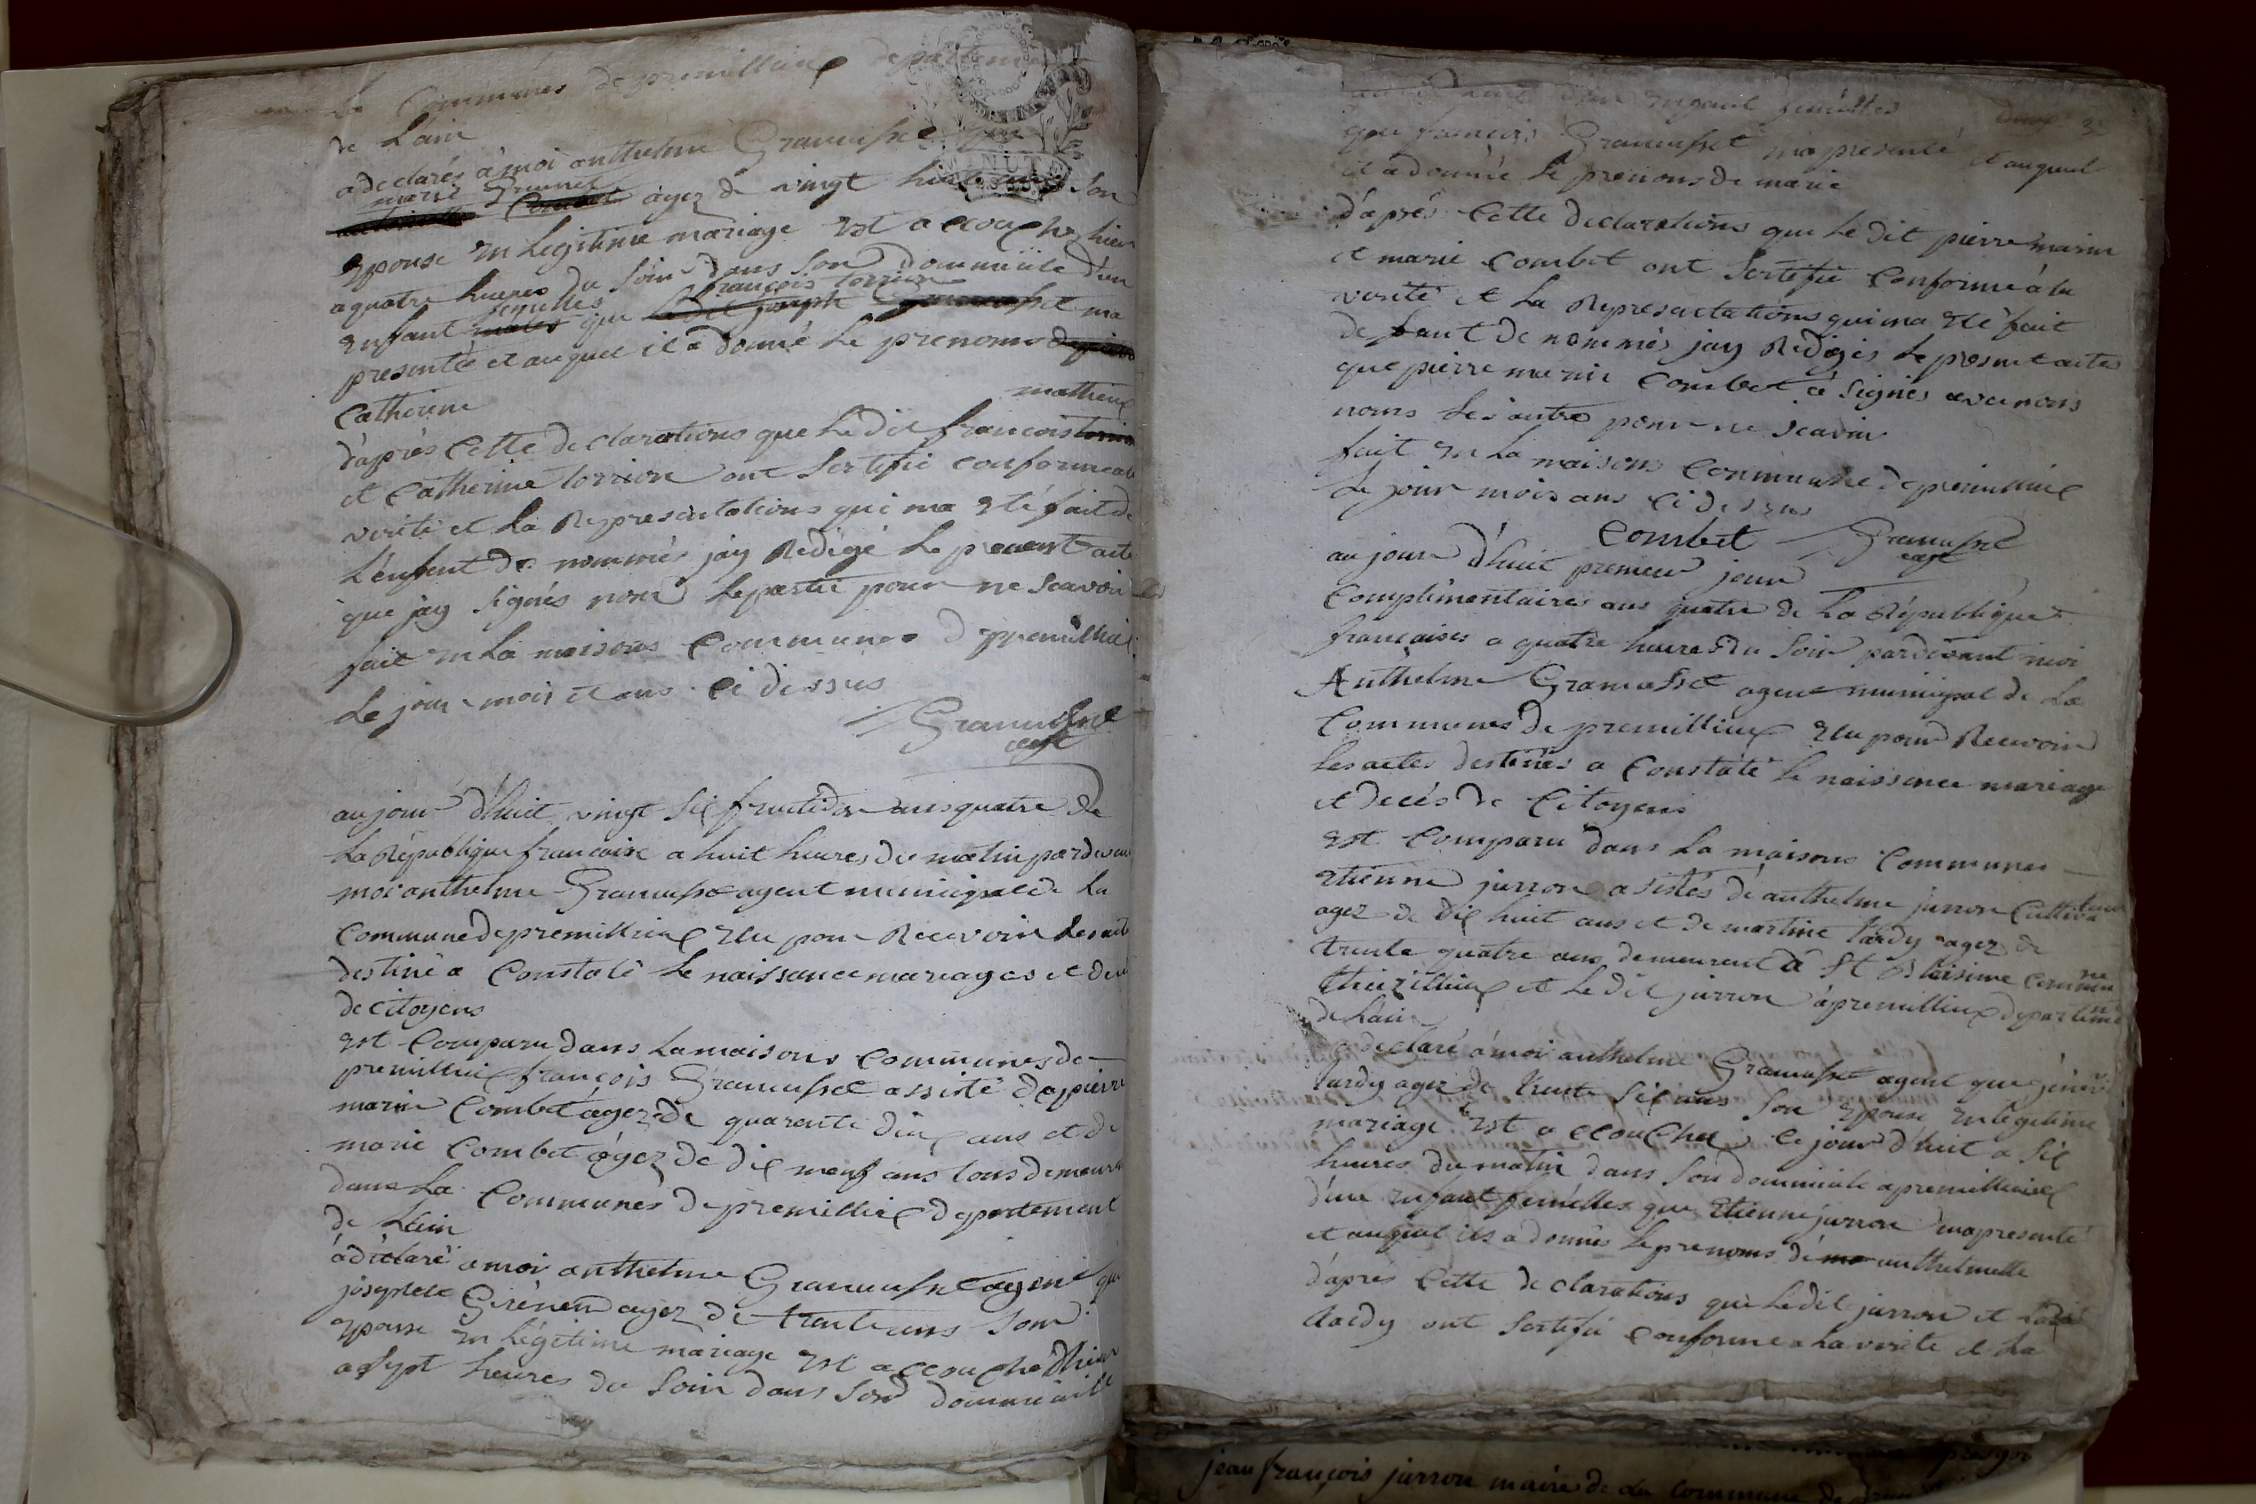 La Communes de premillieux departement
de Lain
a declarés à moi anthelme Gramusset que
marie Grennet
agez de vingt huit ans son
epouse en legitime mariage est accouchez hier
a quatre hueres du soir dans son dommicile d'un
femelles françois torrion
enfant males que le dit joseph Gramusset ma
presenté et auquel il a donné le prenoms
Catherine
mathieux
d'après Cette declarations que le dit françois torrion
et Catherine torrion ont sertifié conforme a la
verité et la Representations qui ma eté fait de
l'enfent de nommés jay Redigé le present acte
que jay signés nond le partie pour ne scavoir
fait en la maisons Communes d premillieux
le jour mois et ans ci dessus
Gramusset
agt
au jour d'huit vingt six fructidor ans quatre de
la Républiqe francaise a huit heures du matin par devant
moi anthelme Gramusset agent municipal de la
Commune de premillieux elu pour Recevoir les acte
destiné a Constaté le naissance mariages et deces
de citoyens
est Comparu dans la maisons Communes de
premillieux françois Gramusset assisté de pierre
marin Combet agez de quarante deux ans et de
marie Combet agez de dix neuf ans tous demeurant
dans la Communes de premillieux departement
de Lain
a declaré a moi anthelme Gramusset agent que
josephte Girenen agez de trente ans son
epouse en légitime mariage est accouche d'hier
a sept heures du soir dans son dommicille
d'un enfant femélles
que francois Gramusset ma presenté et auquel
il a donné le prenons de marie
d'après Cette declarations que le dit pierre marin
et marie Combet ont sertifié Conforme à la
verité et la Representations qui ma eté fait
de l'anft de nommés jay Redigés le presnet actes
que pierre marin Combet a signés avec nous
nons les autre pour ne scavoir
fait en la maisons Commune de premillieux
le jour mois ans ci dessus
Combet Gramusset
agt
au jour d'huit premeur jour
Complimentaires ans quatre de La République
francaises a quatre hueres du soir pardevant moi
Anthelme Gramusset agent municipal de La
Communes de premillieux elu pour Recevoir
les actes destinés a Constaté le naissence mariage
et decés de Citoyens
est Comparu dans la maisons Communes
etienne jurron asistés de anthelme jurron Cultivateur
agez de dix huit ans et de martine tardy agez de
trente quatre ans demeurent à St blaisime Commune
theizillieux et le dit jurron à premillieux departement
de Lain
a declaré à moi anthelme Gramusset agent que
tardy agez de trente six ans son epouse en légitime
mariage est accouchez ce jour d'huit a six
heures du matin dans son dommicile a premillieux
d'une enfant femélles que etienne jurron ma presenté
et auquel ils a donnés le prenoms de anthelmette
d'après Cette declarations que le dit jurron et
tardy ont sertifié conforme a la verité et la
jean françois jurron maire de la Commune de